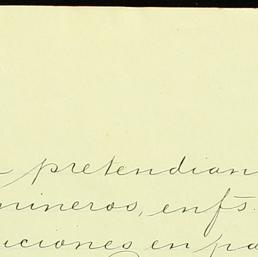 pretendian
mineros, enfs.
uciones en pa